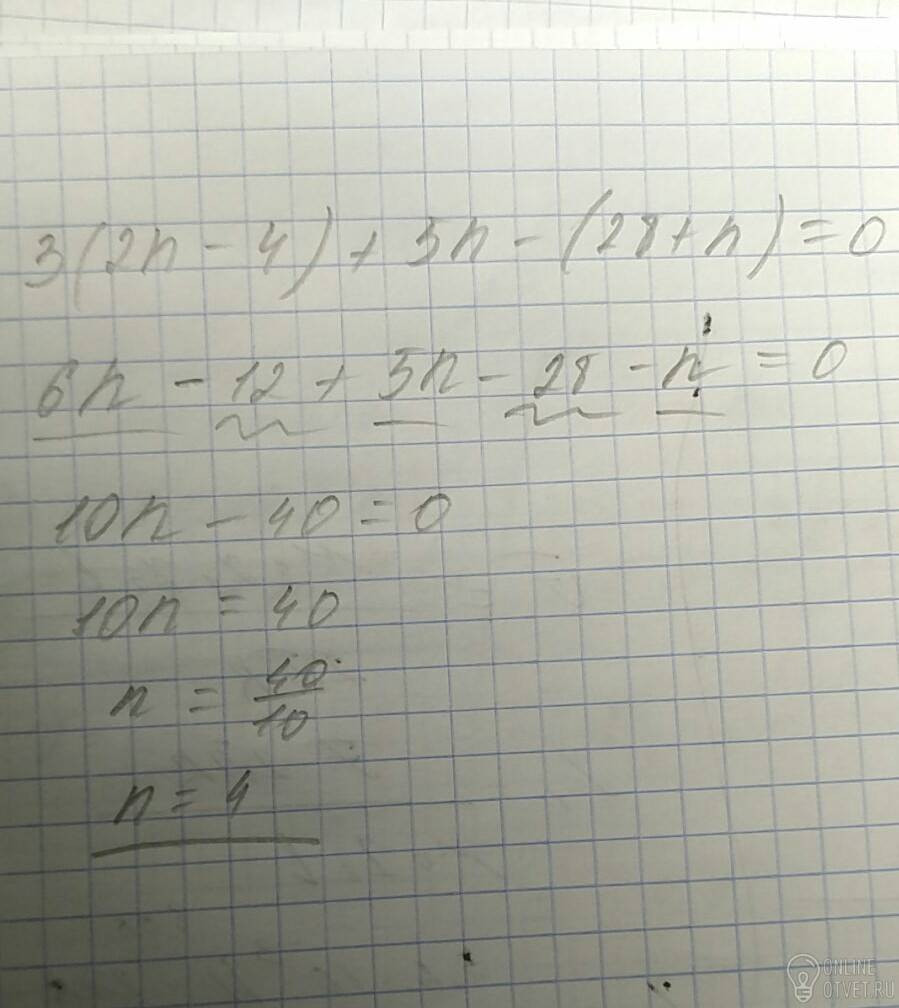 3(2n - 4) + 5n - (28 + n) = 0
6n - 12 + 5n - 28 - n = 0
10n - 40 = 0
10n = 40
n = 40/10
n = 4
ONLINE
OTVET.RU